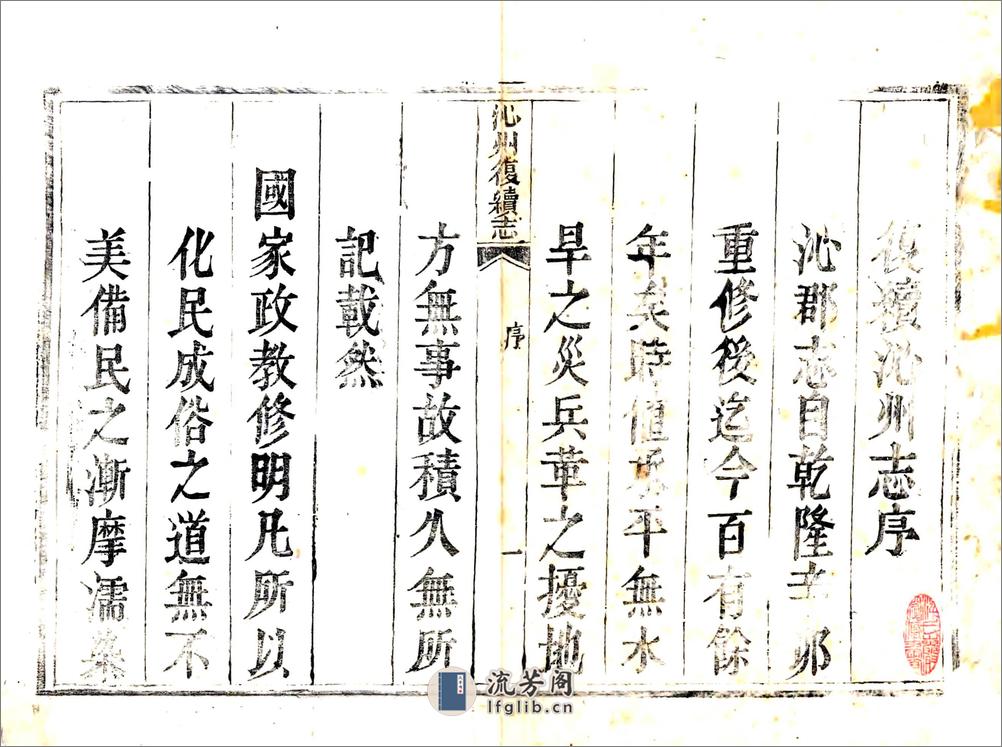 復續沁州志序
沁郡志自乾隆辛卯
重修後迄今百有餘
年矣時值昇平無水
旱之災兵革之擾地
沁州復續志
序
一
方無事故積久無所
記載然
國家政教修明凡所以
化民成俗之道無不
美備民之漸摩濡染
流芳阁
lfglib.cn